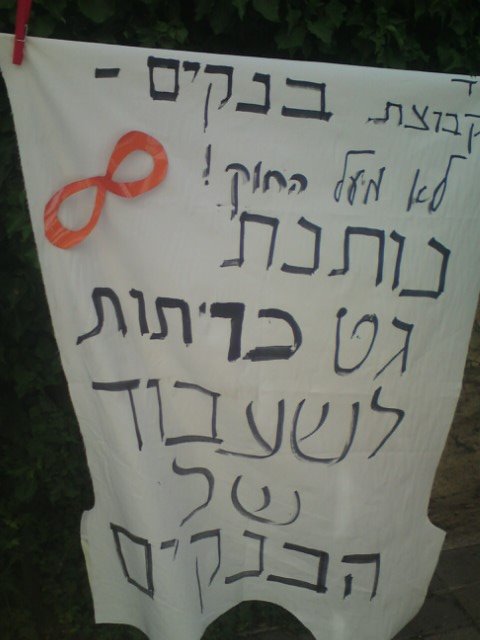 קבוצת בנקים -
לא מעל החוק!
נותנת
גט כריתות
לשעבוד
של
הבנקים